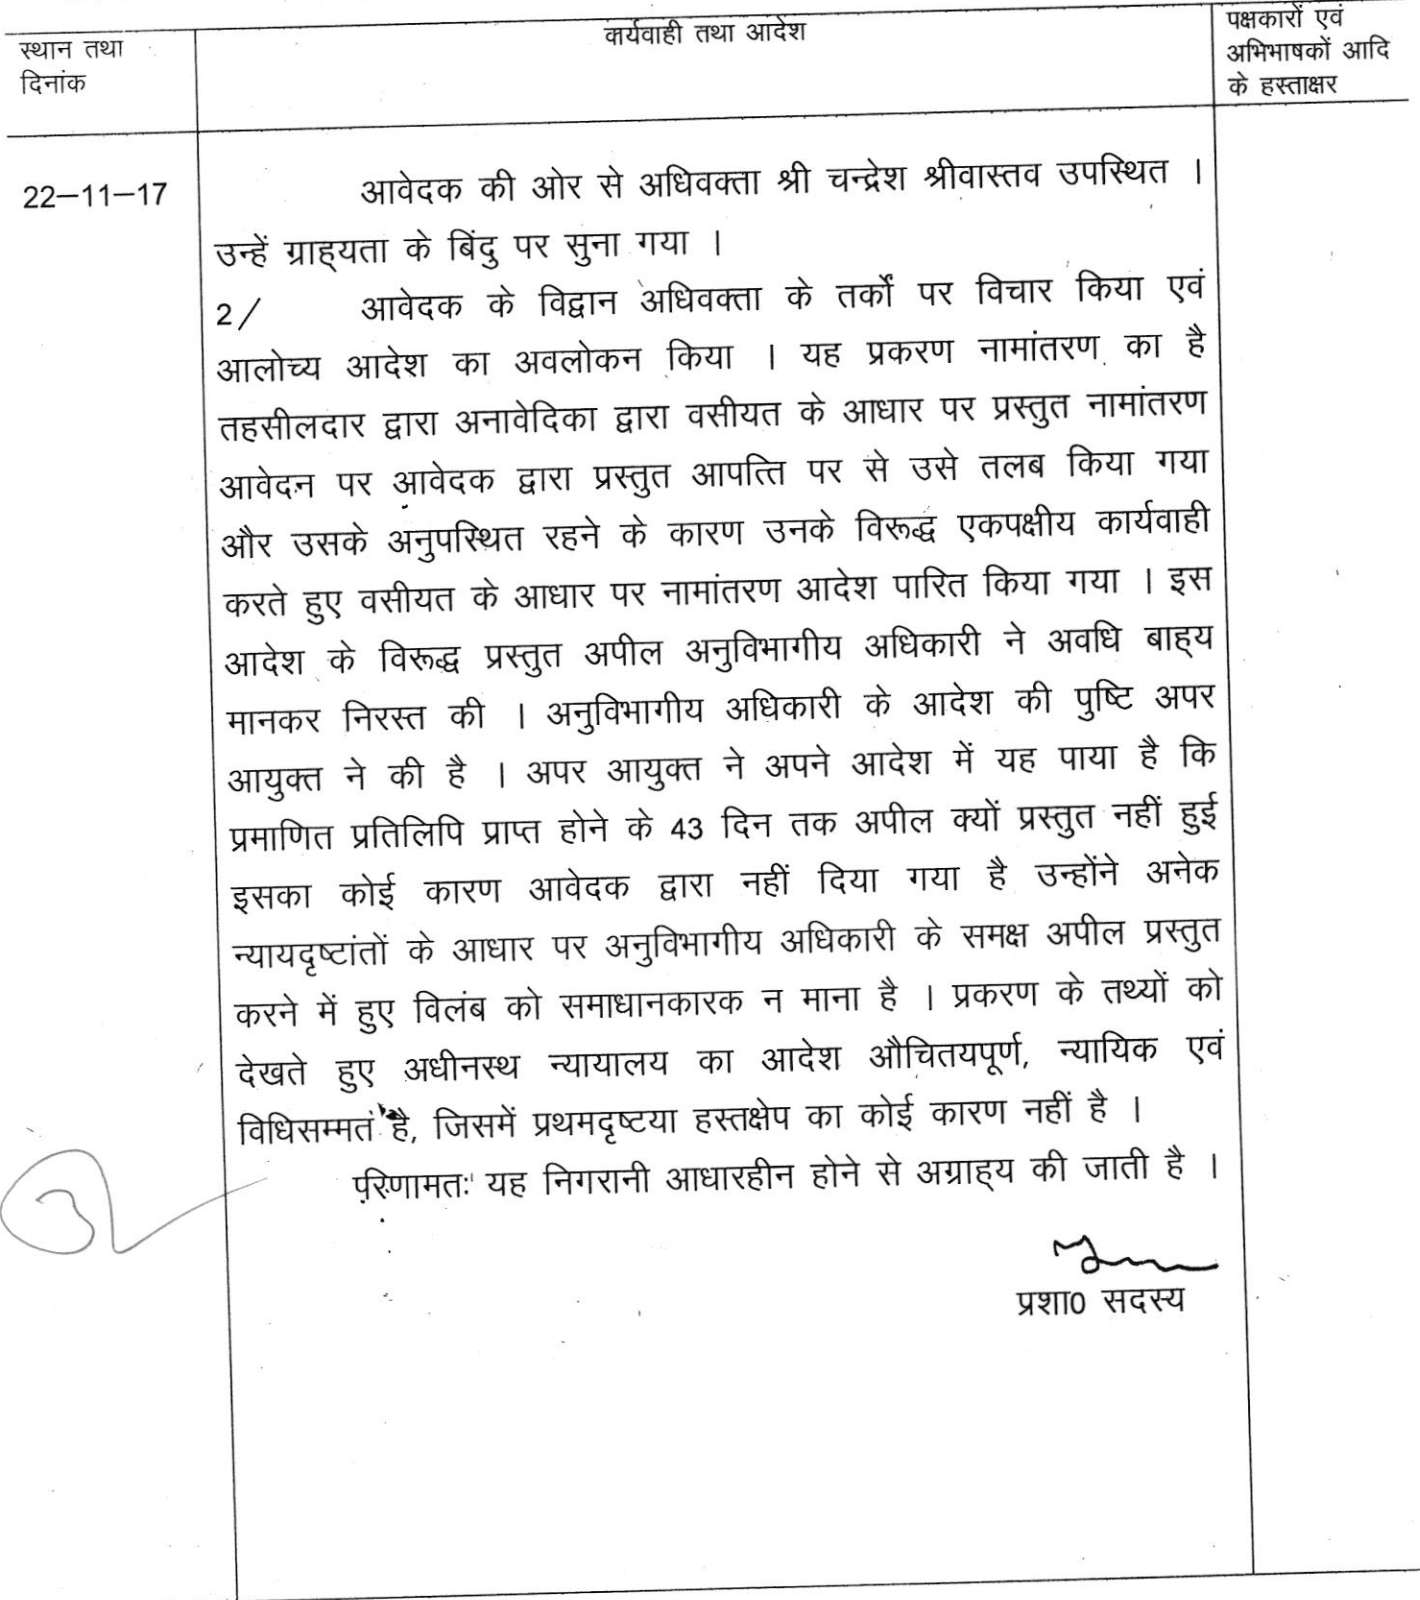 स्थान तथा
दिनांक
कार्यवाही तथा आदेश
पक्षकारों एवं
अभिभाषकों आदि
के हस्ताक्षर
22–11–17
आवेदक की ओर से अधिवक्ता श्री चन्द्रेश श्रीवास्तव उपस्थित ।
उन्हें ग्राह्यता के बिंदु पर सुना गया ।
2/ आवेदक के विद्वान अधिवक्ता के तर्कों पर विचार किया एवं
आलोच्य आदेश का अवलोकन किया । यह प्रकरण नामांतरण का है
तहसीलदार द्वारा अनावेदिका द्वारा वसीयत के आधार पर प्रस्तुत नामांतरण
आवेदन पर आवेदक द्वारा प्रस्तुत आपत्ति पर से उसे तलब किया गया
और उसके अनुपस्थित रहने के कारण उनके विरूद्ध एकपक्षीय कार्यवाही
करते हुए वसीयत के आधार पर नामांतरण आदेश पारित किया गया । इस
आदेश के विरूद्ध प्रस्तुत अपील अनुविभागीय अधिकारी ने अवधि बाह्य
मानकर निरस्त की । अनुविभागीय अधिकारी के आदेश की पुष्टि अपर
आयुक्त ने की है । अपर आयुक्त ने अपने आदेश में यह पाया है कि
प्रमाणित प्रतिलिपि प्राप्त होने के 43 दिन तक अपील क्यों प्रस्तुत नहीं हुई
इसका कोई कारण आवेदक द्वारा नहीं दिया गया है उन्होंने अनेक
न्यायदृष्टांतों के आधार पर अनुविभागीय अधिकारी के समक्ष अपील प्रस्तुत
करने में हुए विलंब को समाधानकारक न माना है । प्रकरण के तथ्यों को
देखते हुए अधीनस्थ न्यायालय का आदेश औचितयपूर्ण, न्यायिक एवं
विधिसम्मत है, जिसमें प्रथमदृष्टया हस्तक्षेप का कोई कारण नहीं है ।
परिणामतः यह निगरानी आधारहीन होने से अग्राह्य की जाती है ।
प्रशा0 सदस्य